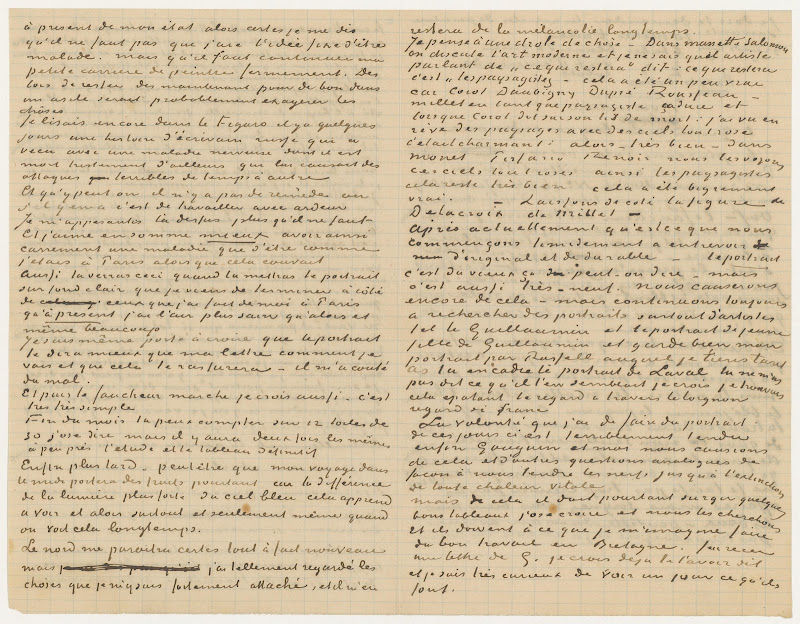 à present de mon état alors certes je me dis
qu'il ne faut pas que j'aie l'idée fixe d'être
malade. mais qu'il faut continuer ma
petite carrière de peintre fermement. Des
lors de rester dès maintenant pour de bon dans
un asile serait probablement exagerer les
choses
Je lisais encore dans le Figaro il y a quelques
jours une histoire d'écrivain russe qui a
vecu avec une maladie nerveuse dont il est
mort tristement d'ailleurs qui lui causait des
attaques terribles de temps à autre
Et qu'y peut on il n'y a pas de remède ou
s'il y en a c'est de travailler avec ardeur
Je m'appesantis la dessus plus qu'il ne faut
Et j'aime en somme mieux avoir ainsi
carrement une maladie que d'être comme
j'étais à Paris alors que cela couvait
Aussi tu verras ceci quand tu mettras le portrait
sur fond clair que je viens de terminer à côté
de ceux que j'ai fait de moi à Paris
qu'à présent j'ai l'air plus sain qu'alors et
même beaucoup
Je suis même porté à croire que le portrait
te dira mieux que ma lettre comment je
vais et que cela te rassurera – il m'a couté
du mal.
Et puis le faucheur marche je crois aussi – c'est
très très simple
Fin du mois tu peux compter sur 12 toiles de
30 j'ose dire mais il y aura deux fois les mêmes
à peu près l'etude et le tableau définitif
Enfin plus tard – peut être que mon voyage dans
le midi portera des fruits pourtant car la différence
de la lumière plus forte du ciel bleu cela apprend
a voir et alors surtout et seulement même quand
on voit cela longtemps.
Le nord me paraitra certes tout à fait nouveau
mais j'ai tellement regardé les
choses que je m'y suis fortement attaché, et il m'en
restera de la mélancolie longtemps.
Je pense à une drole de chose – Dans manette Salomon
on discute l'art moderne et je ne sais quel artiste
parlant de „ce qui restera" dit: ce qui restera
c'est „les paysagistes – cela a été un peu vrai
car Corot Daubigny Dupré Rousseau
millet en tant que paysagiste ça dure et
lorsque Corot dit sur son lit de mort: j'ai vu en
rêve des paysages avec des ciels tout rose
c'etait charmant: alors – très bien – dans
monet Pissarro Renoir nous les voyons
ces ciels tout roses ainsi les paysagistes
cela reste très bien cela a été bigrement
vrai. – Laissons de coté la figure de
Delacroix de Millet –
Après actuellement qu'est ce que nous
commençons timidement a entrevoir
d'original et de durable – le portrait
c'est du vieux ça peut-on dire – mais
c'est aussi très-neuf. nous causerons
encore de cela – mais continuons toujours
a rechercher des portraits surtout d'artistes
tel le Guillaumin et le portrait de jeune
fille de Guillaumin et garde bien mon
portrait par Russell auquel je tiens tant
As tu encadré le portrait de Laval tu ne m'as
pas dit ce qu'il t'en semblait je crois je trouvais
cela epatant le regard a travers le lorgnon
regard si franc
La volonté que j'ai de faire du portrait
de ces jours ci est terriblement tendue
enfin Gauguin et moi nous causions
de cela et d'autres questions analogues de
façon à nous tendre les nerfs jusqu'à l'extinction
de toute chaleur vitale
mais de cela il doit pourtant surgir quelques
bons tableaux j'ose croire et nous les cherchons
et ils doivent à ce que je m'imagine faire
du bon travail en Bretagne. J'ai reçu
une lettre de G. je crois déjà te l'avoir dit
et je suis très curieux de voir un jour ce qu'ils
font.